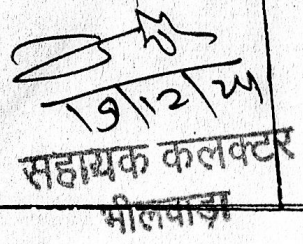 19/12/24
सहायक कलक्टर
भीलवाड़ा